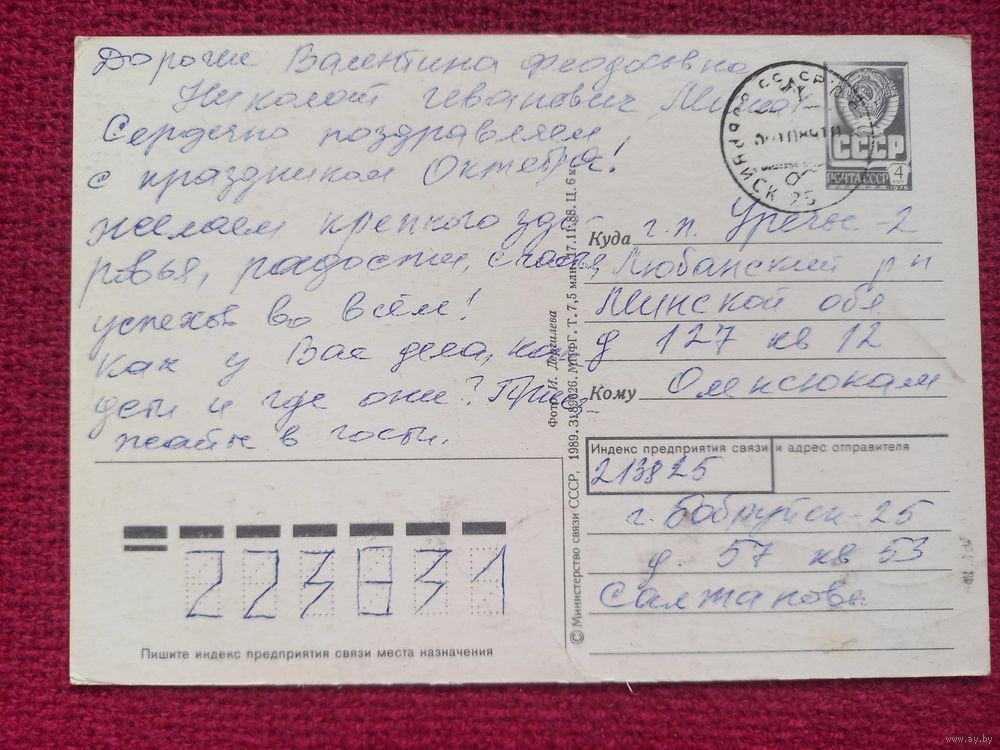 Дорогие Валентина Феодосовна
Николай Иванович
Сердечно поздравляем
с праздником Октября!
желаем крепкого здо
ровья, радости, счастья,
успехов во всём!
Как у Вас дела, как
дети и где они? Приез-
жайте в гости.
СССР
ПОЧТА СССР 4
1976
БОБРУЙСК 25
Куда г.п. Уречье-2
Любанский р н
Минской обл
д 127 кв 12
Кому Омексюкам
Индекс предприятия связи и адрес отправителя
213825
г. Бобруйск-25
д. 57 кв 53
Салжановы
223831
Пишите индекс предприятия связи места назначения
Фото И. Дергилева
© Министерство связи СССР, 1989. 3189626. МПФГ. Т. 7,5 млн. 17.11.88. Ц. 6 к.
www.ay.by